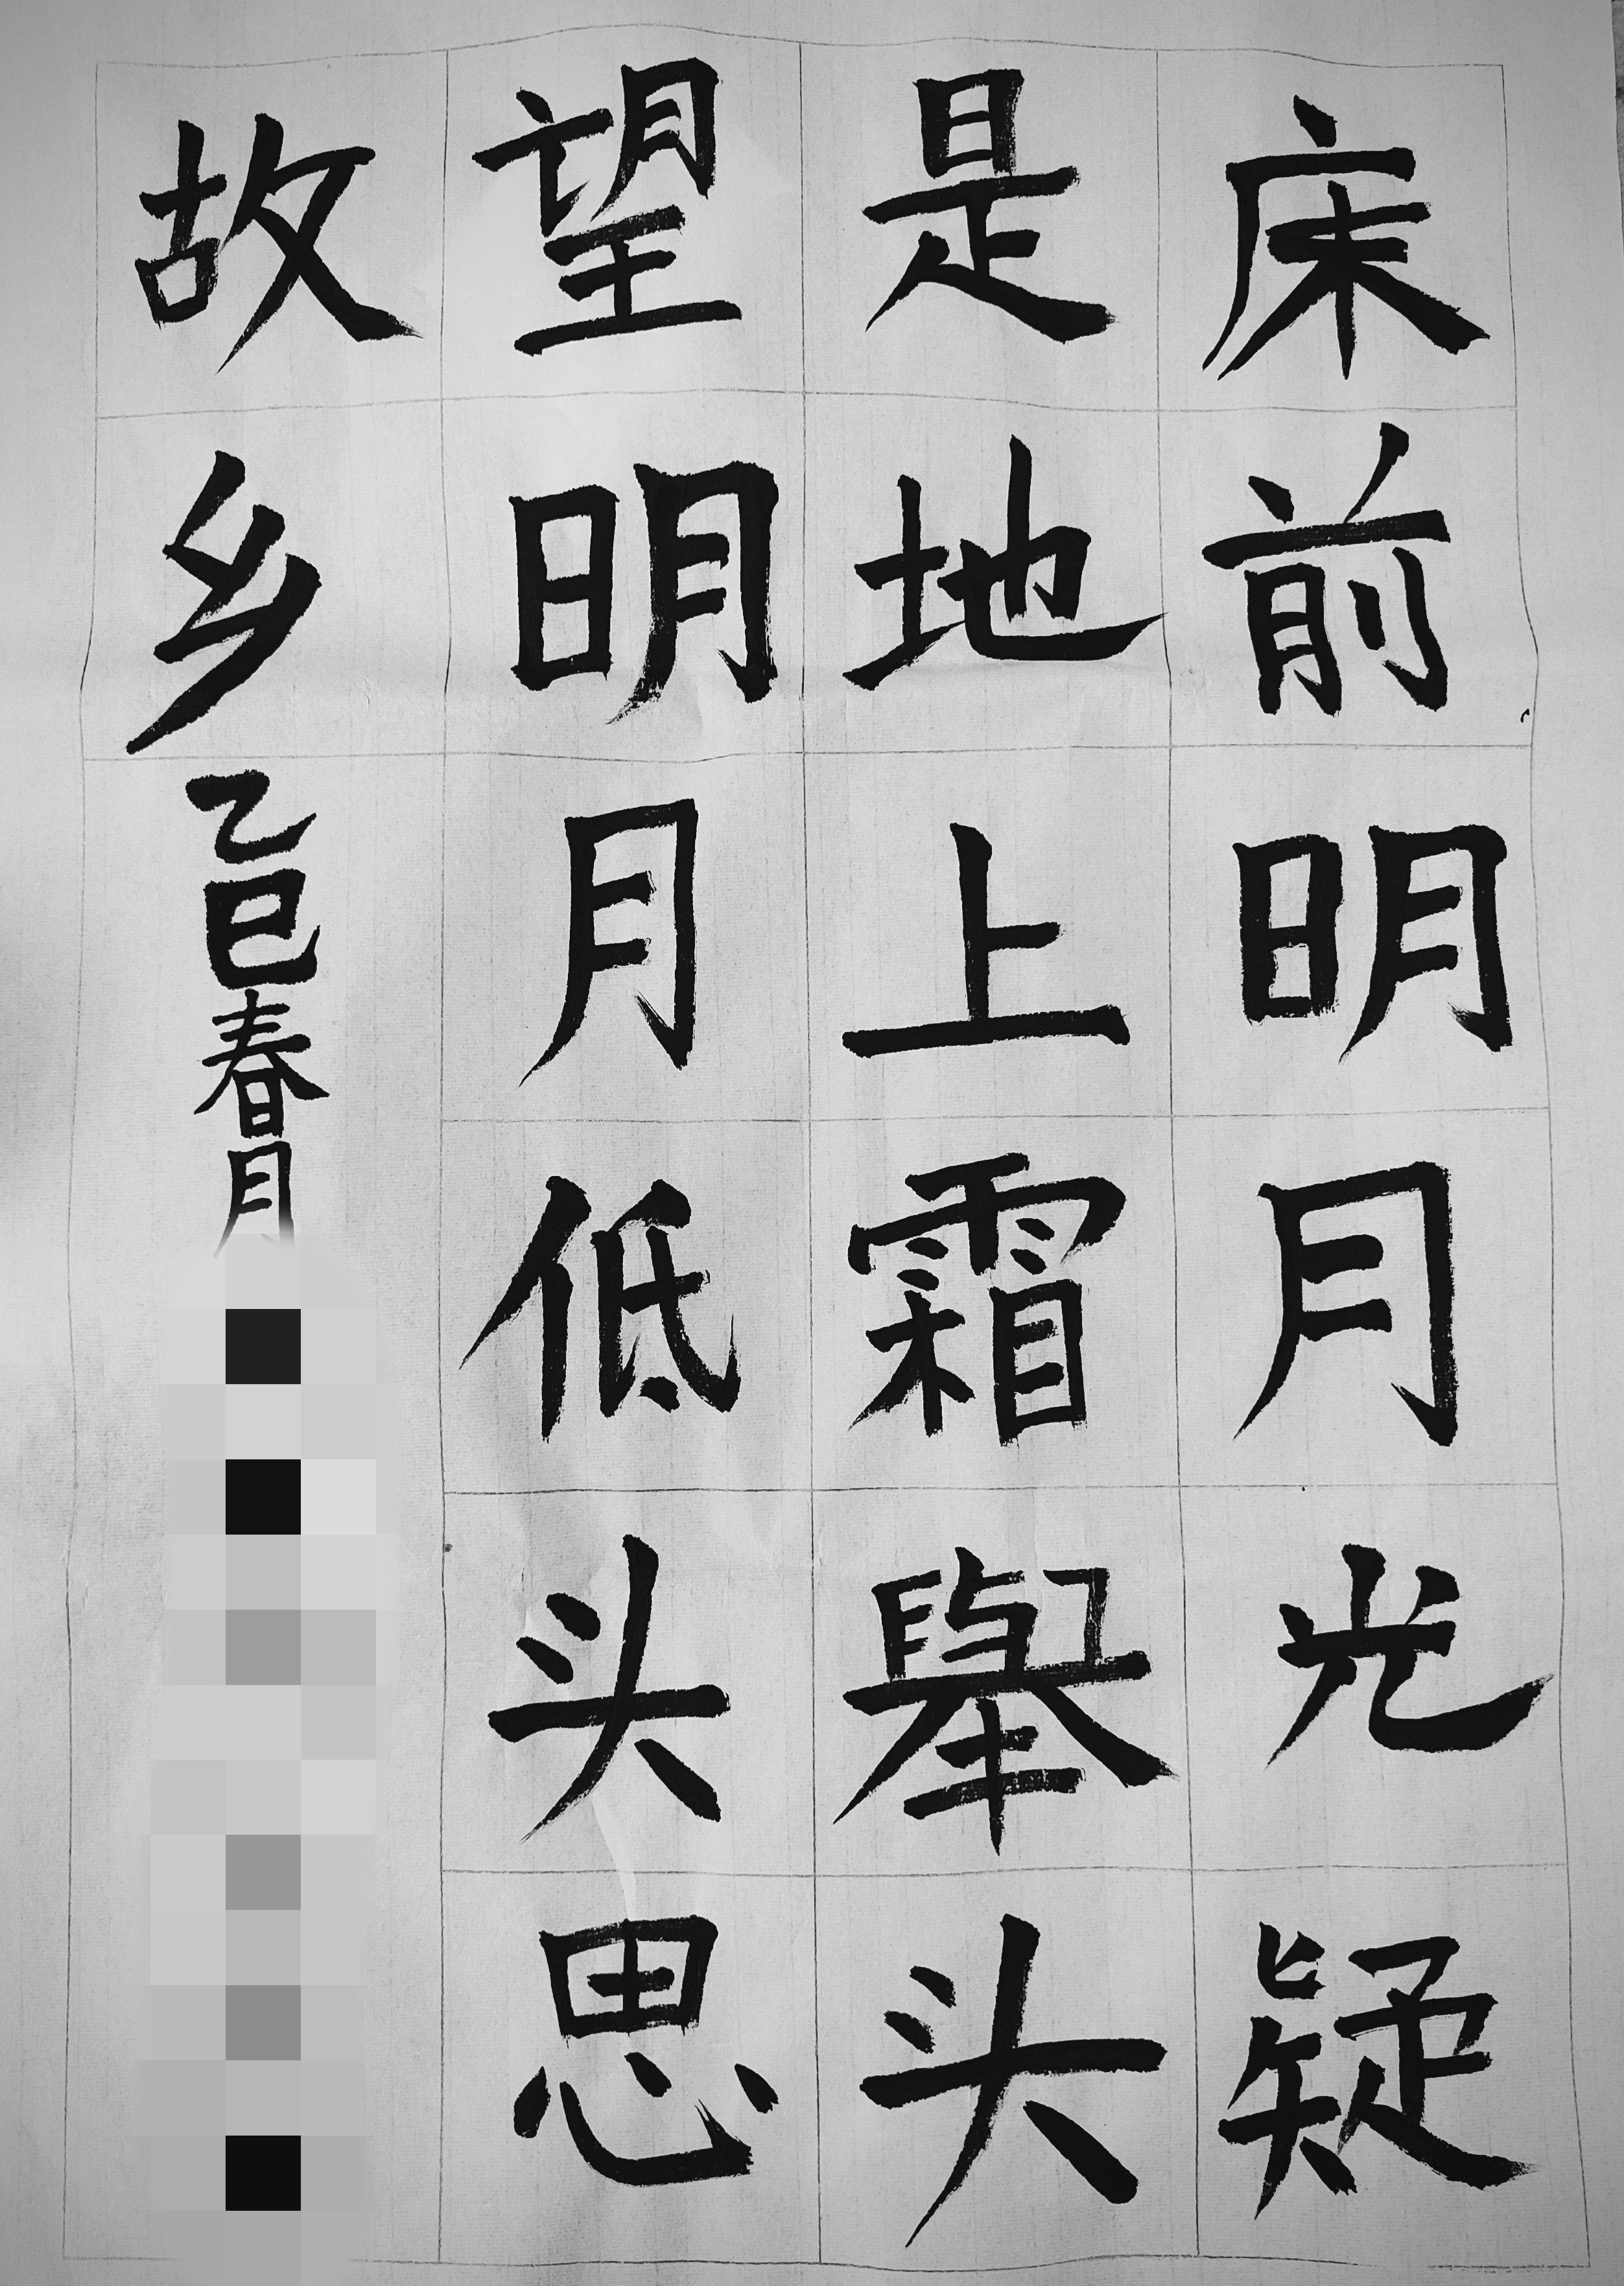 床前明月光疑
是地上霜舉头
望明月低头思
故乡乙巳春月